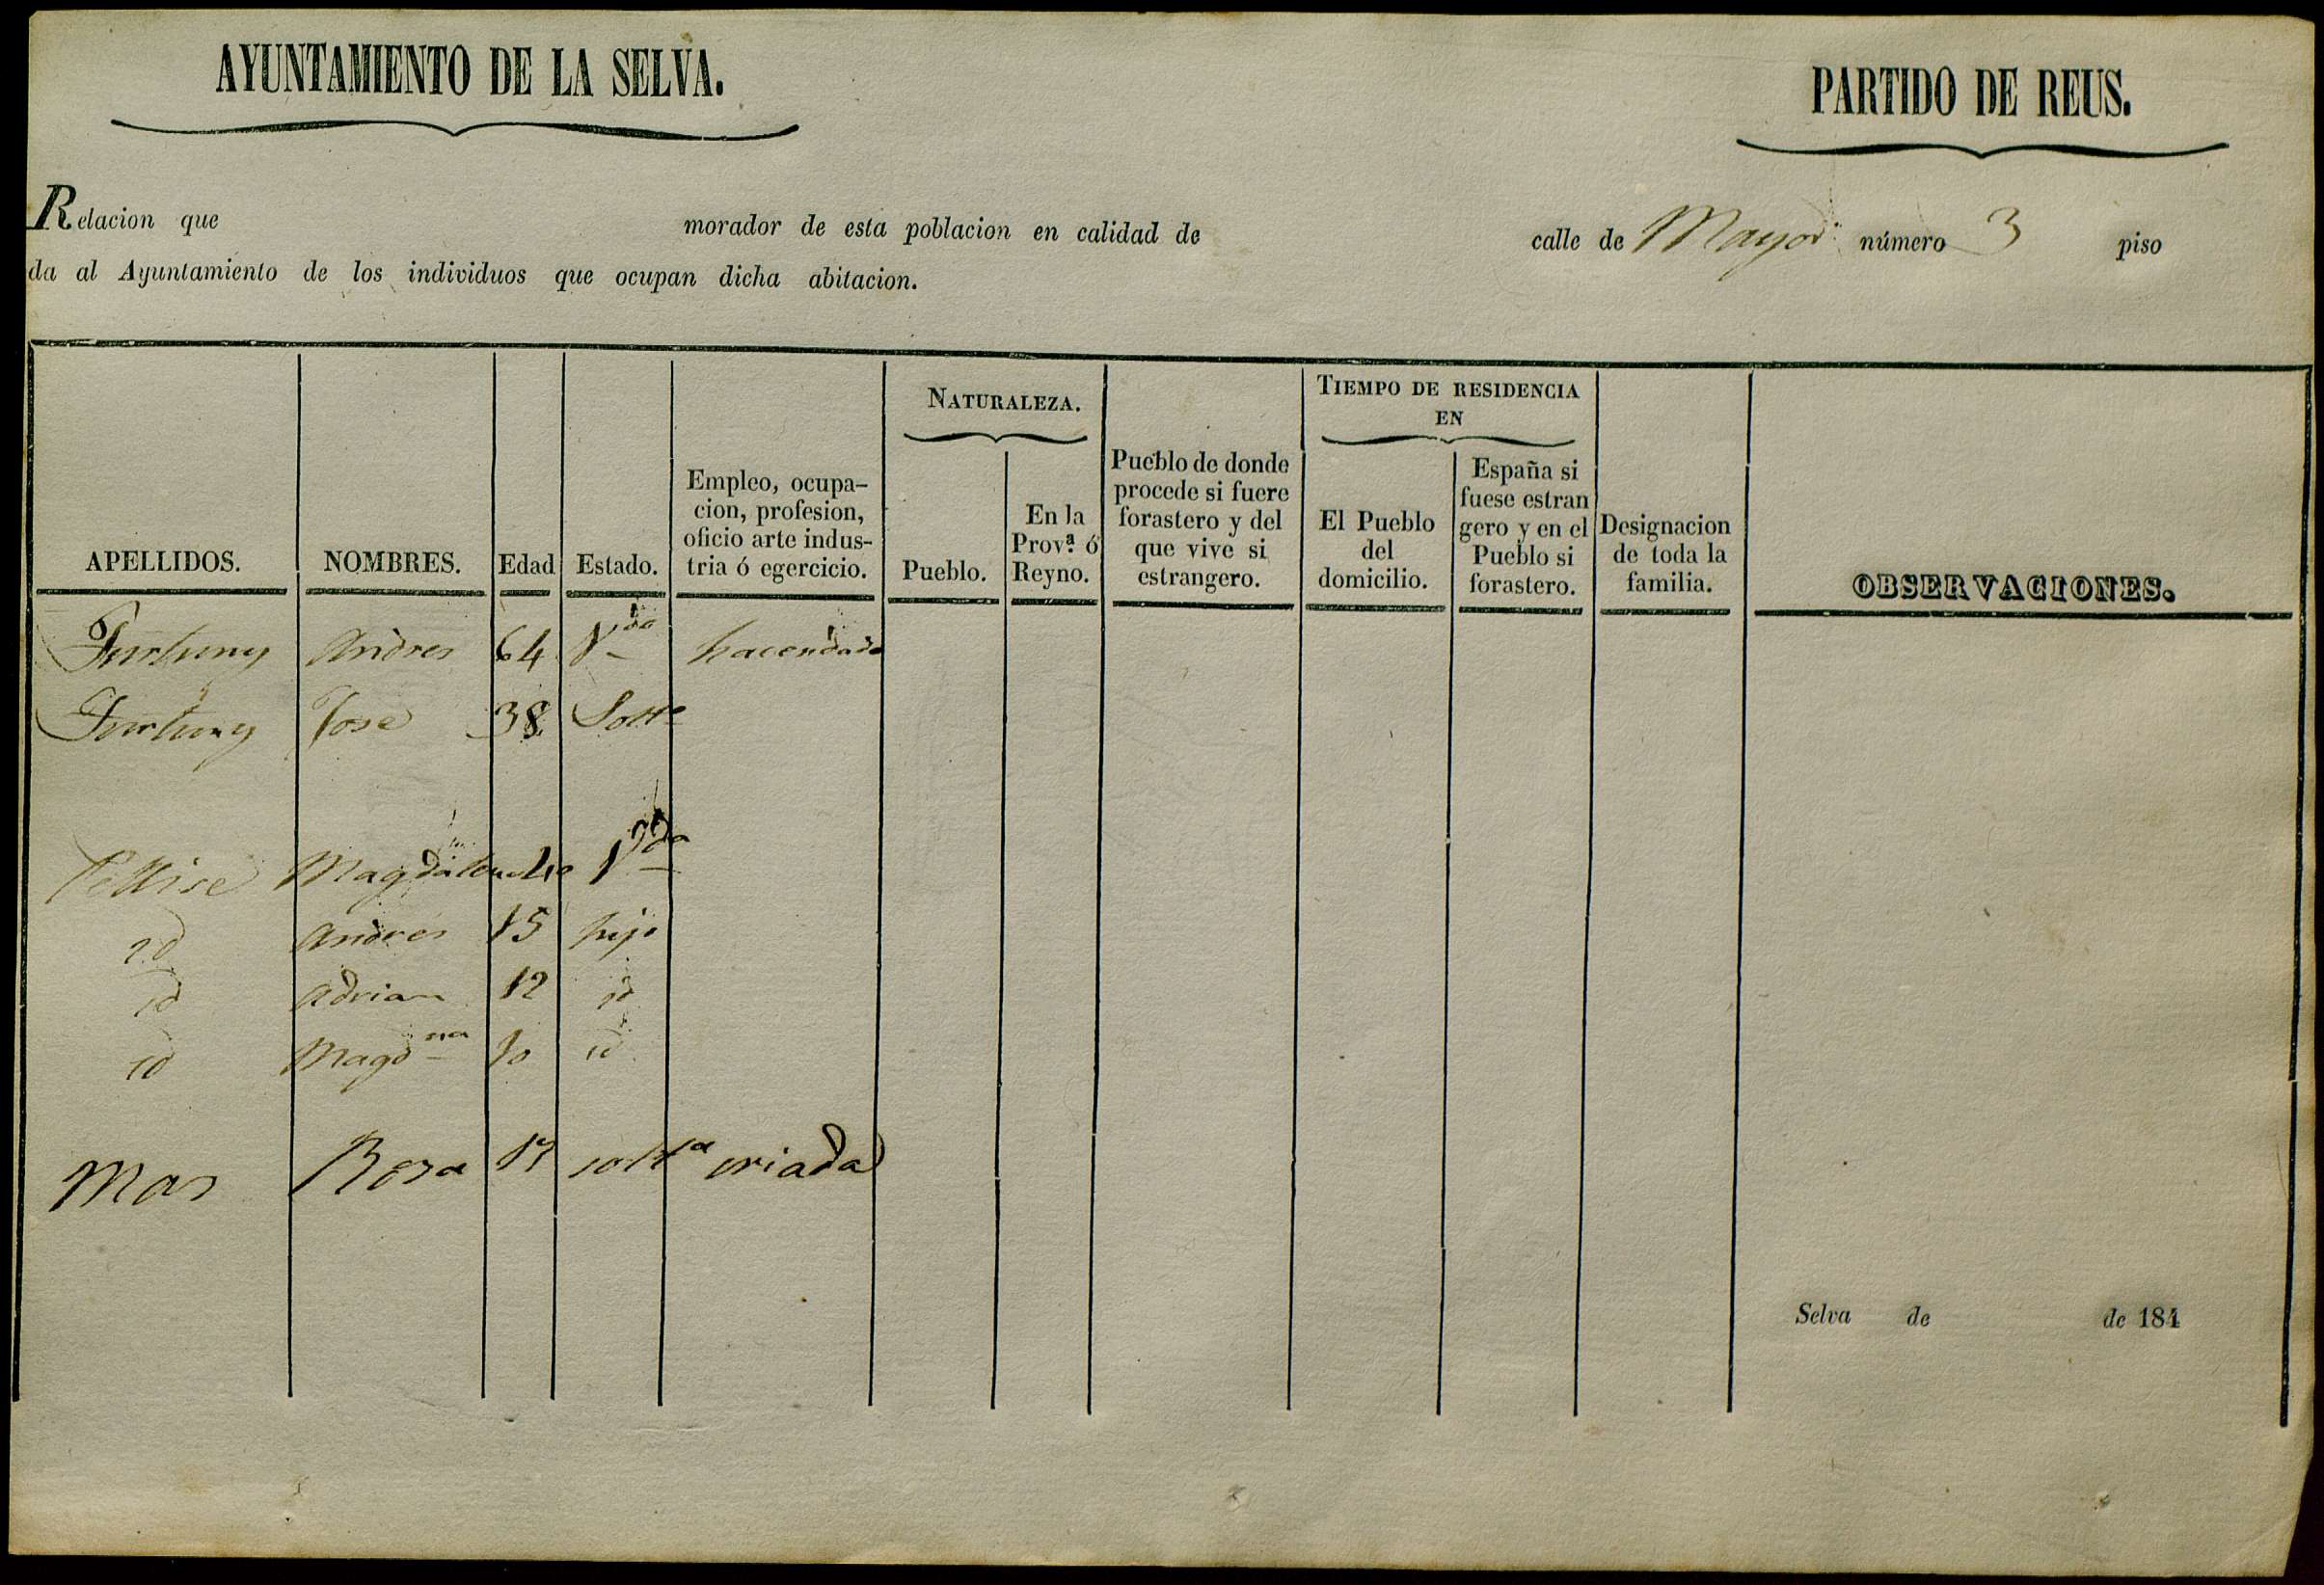 AYUNTAMIENTO DE LA SELVA.
PARTIDO DE REUS.
Relacion que morador de esta poblacion en calidad de calle de Mayor número 3 piso
da al Ayuntamiento de los individuos que ocupan dicha abitacion.
NATURALEZA.
TIEMPO DE RESIDENCIA
EN
APELLIDOS.
NOMBRES.
Edad
Estado.
Empleo, ocupa-
cion, profesion,
oficio arte indus-
tria ó egercicio.
Pueblo.
En la
Prov.ª ó
Reyno.
Pueblo de donde
procede si fuere
forastero y del
que vive si
estrangero.
El Pueblo
del
domicilio.
España si
fuese estran
gero y en el
Pueblo si
forastero.
Designacion
de toda la
familia.
OBSERVACIONES.
Furtuny Andres 64 Vido hacendado
Furtuny Jose 38 Solto
Pellise Magdalena 40 Vda
id Andres 15 hijo
id Adrian 12 id
id Magdna 10 id
Mas Rosa 17 solta criada
Selva de de 184